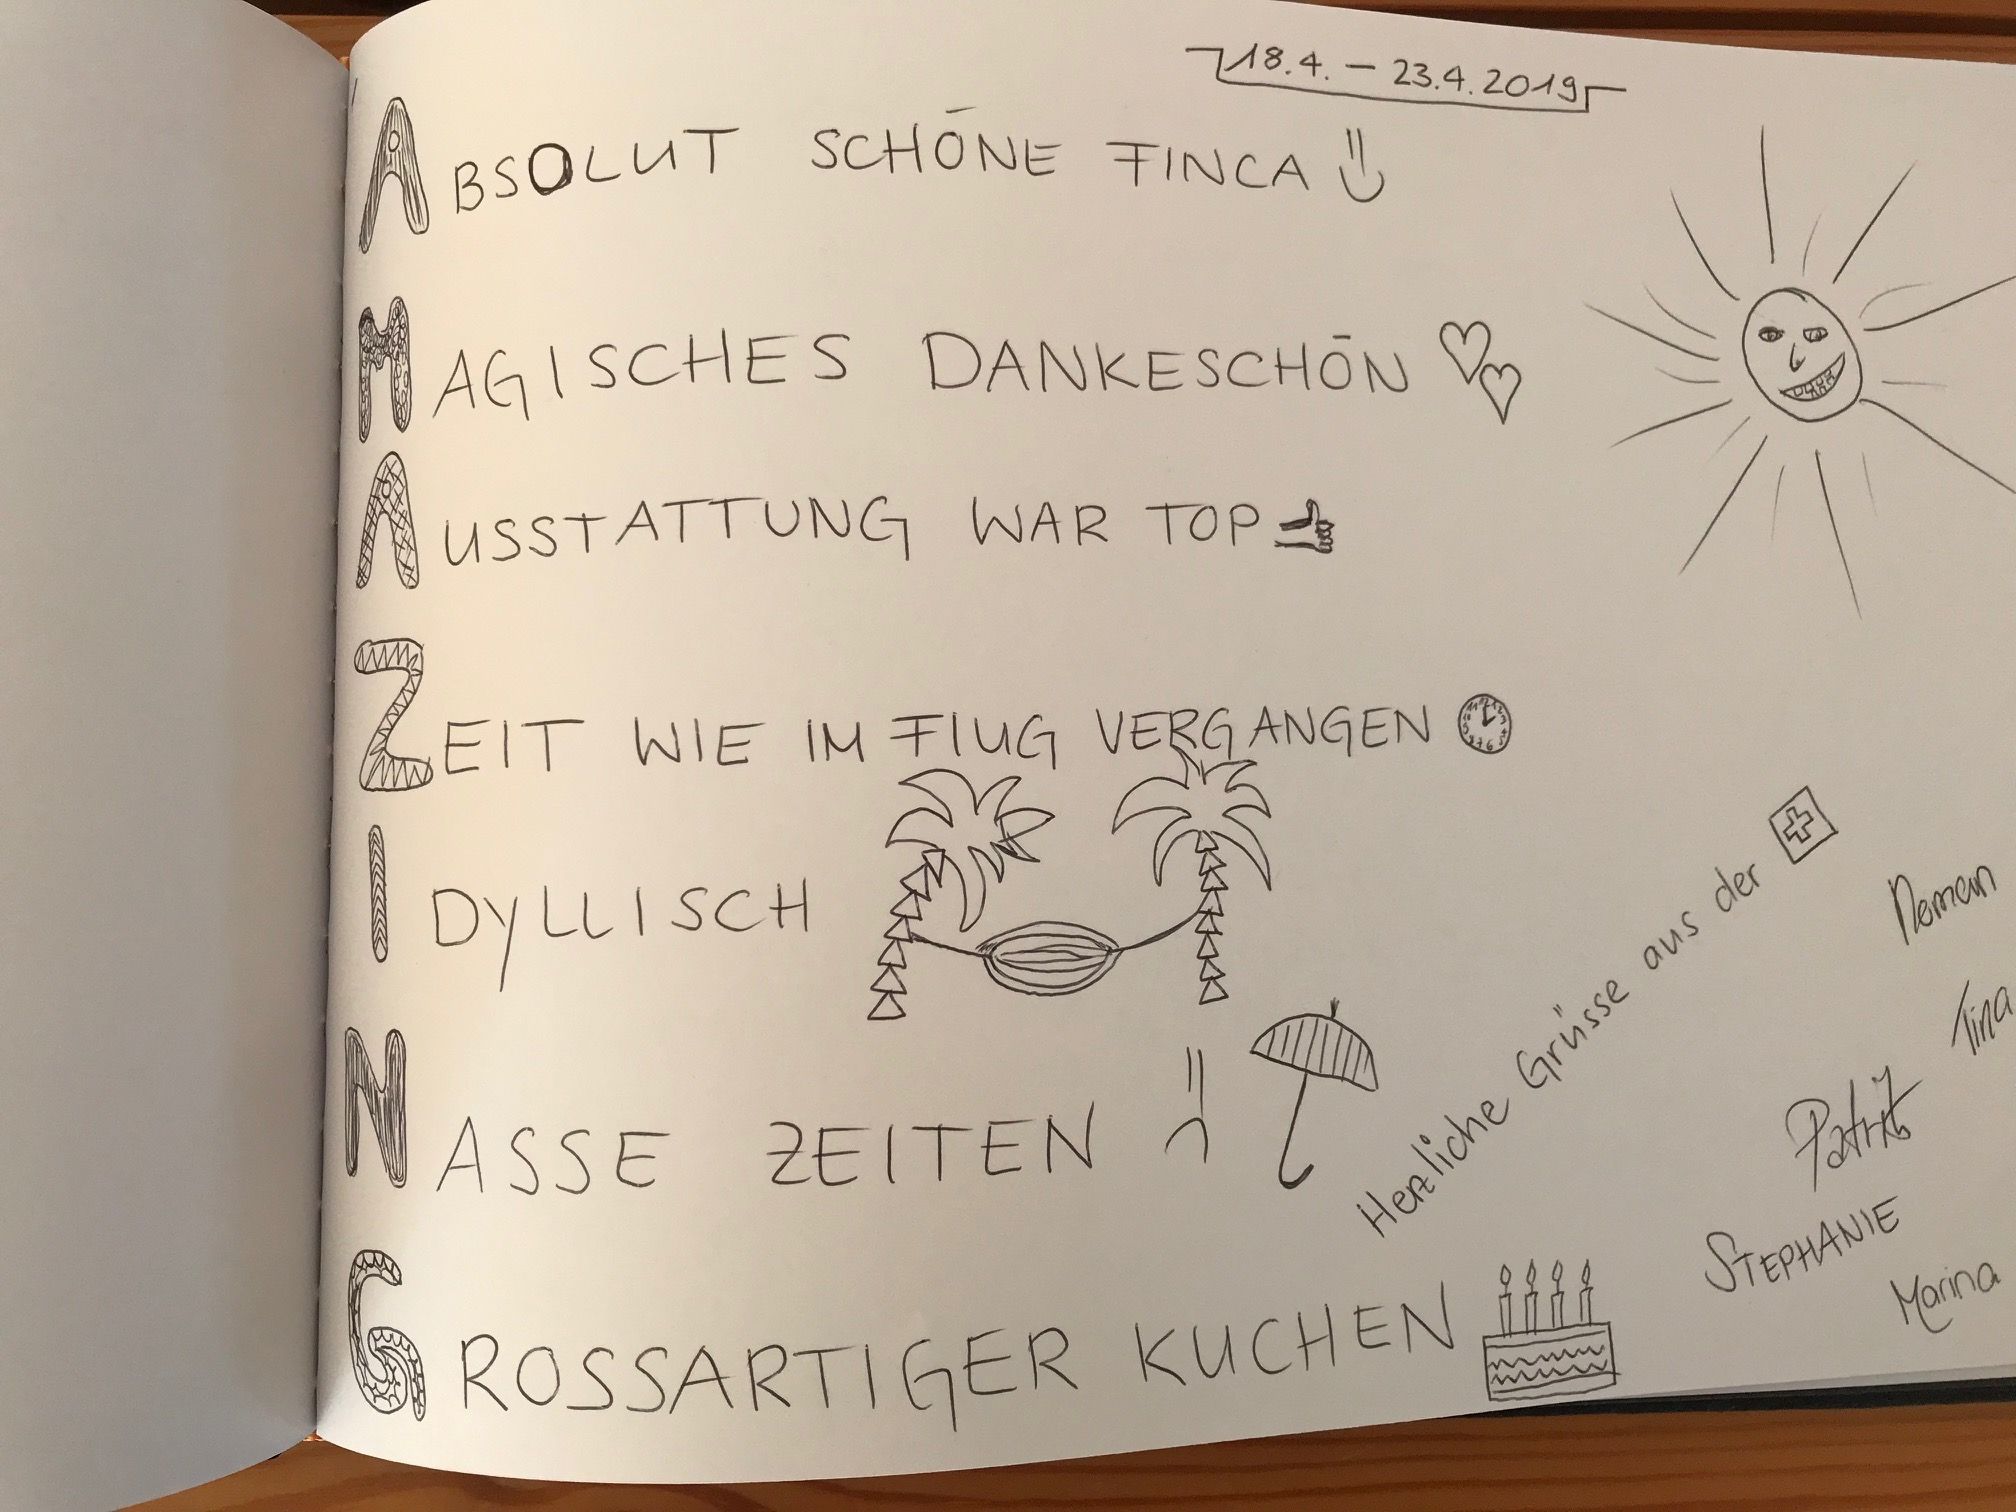 18.4. – 23.4.2019
ABSOLUT SCHÖNE FINCA
MAGISCHES DANKESCHÖN
AUSSTATTUNG WAR TOP
ZEIT WIE IM FLUG VERGANGEN
IDYLLISCH
NASSE ZEITEN
GROSSARTIGER KUCHEN
Herzliche Grüsse aus der
Tina
Patrik
STEPHANIE
Marina